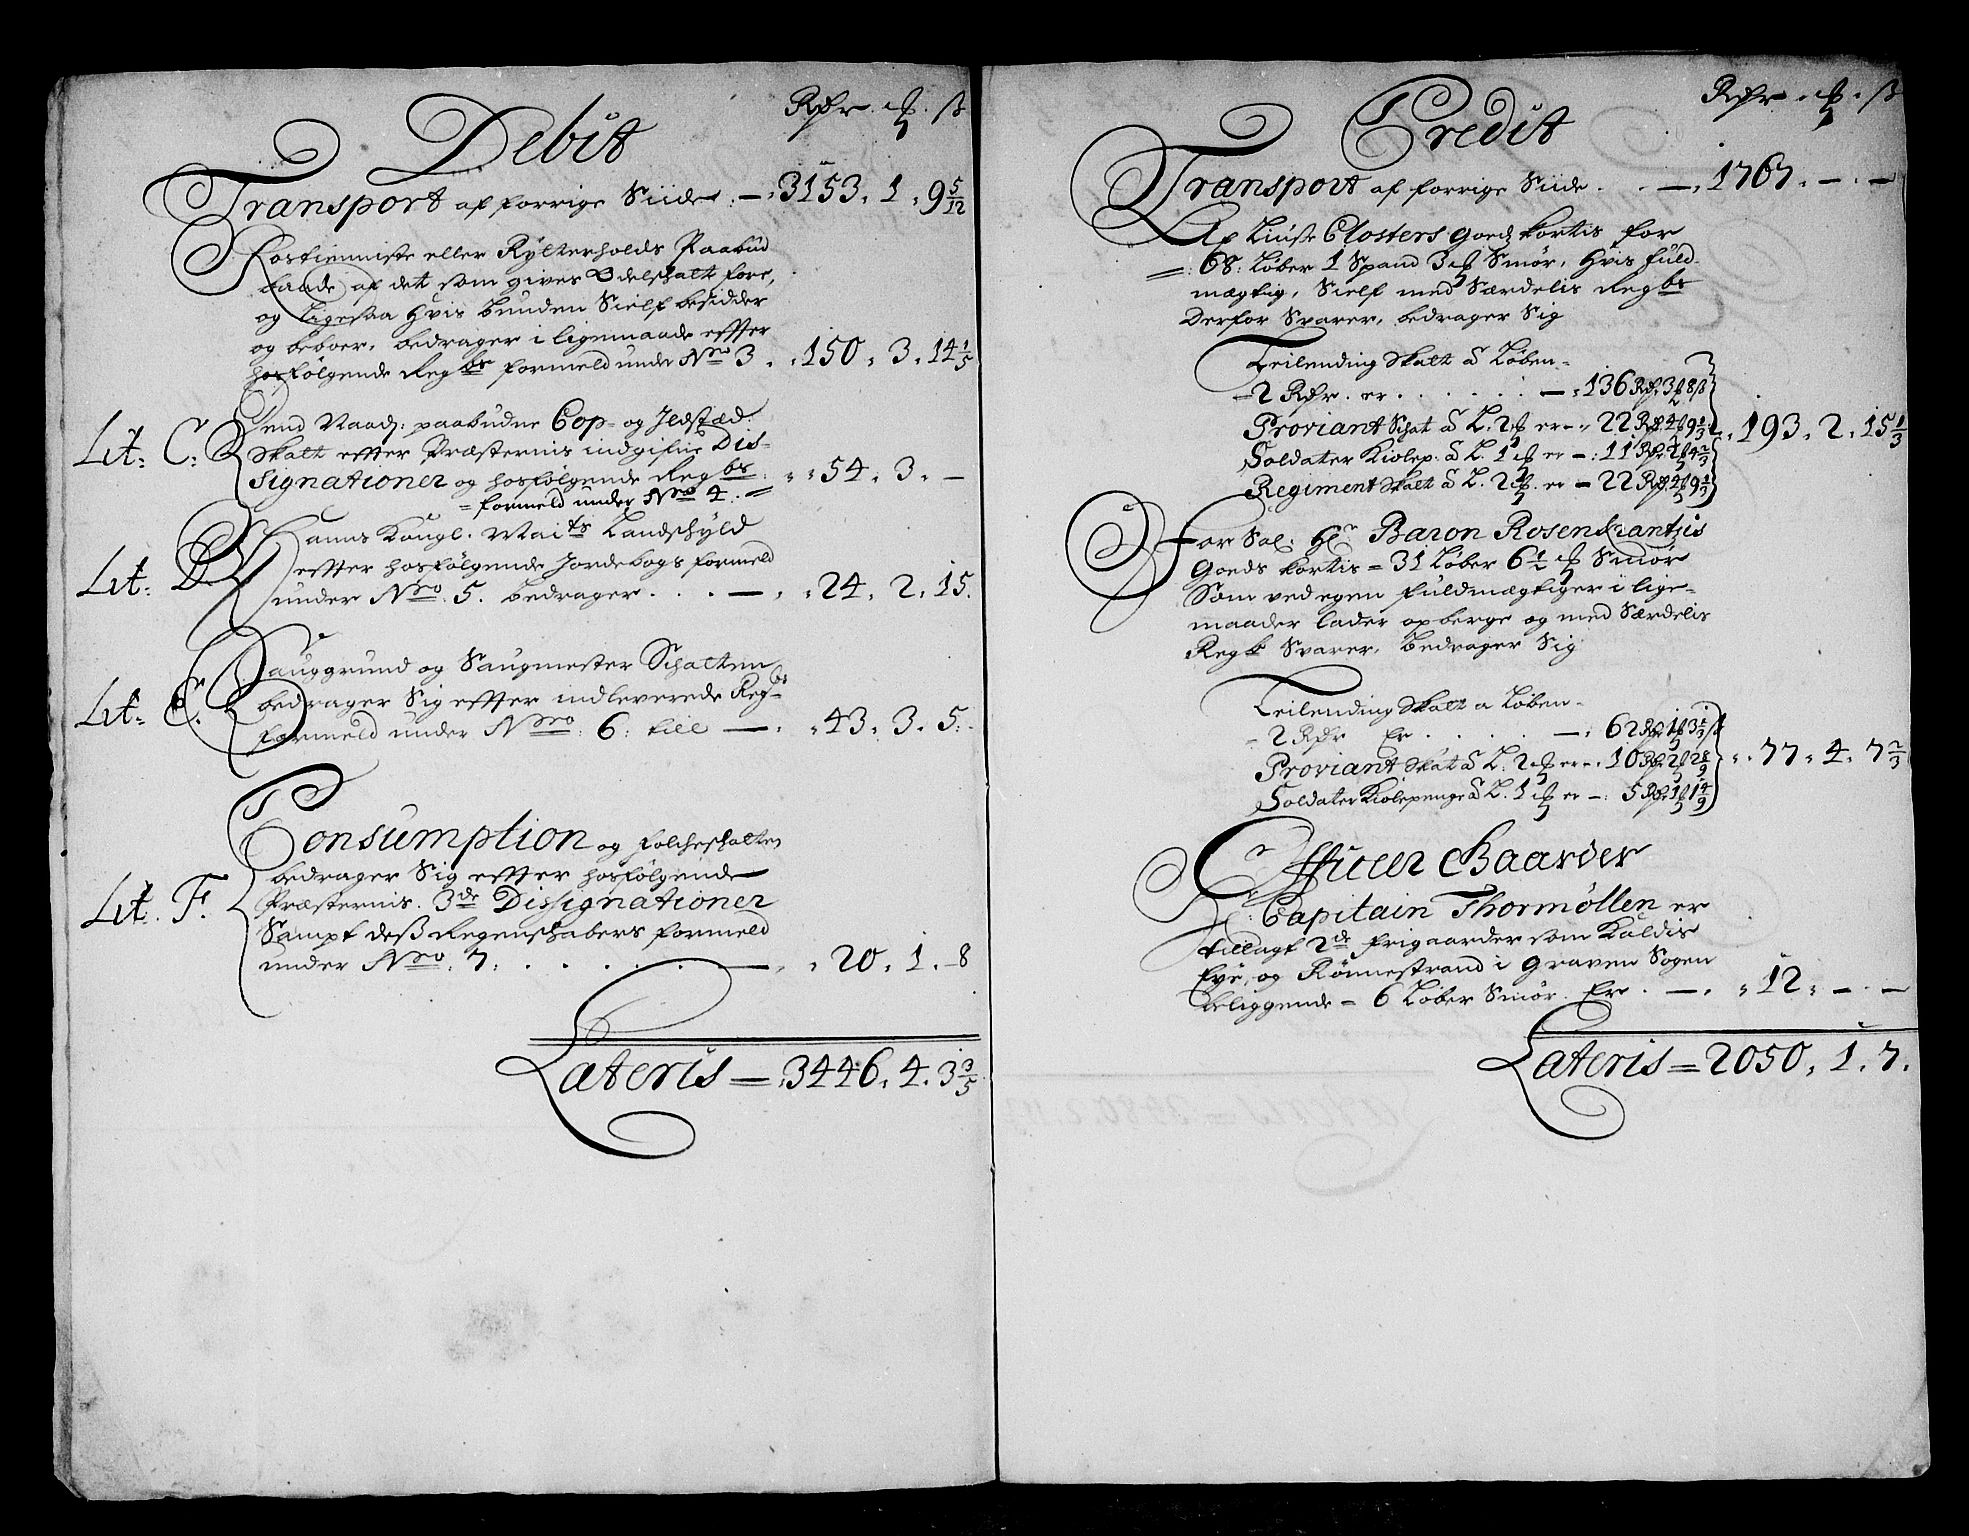 Debit
Rdr. ℳ. ß
Transport af forrige Siide. — 3153. 1. 9 5/12
Rostienniste eller Rytterholds Paabud
baade af det som gives Odelskatt fore,
og ligesaa hvis Bunden Sielf besidder
og beboer, bedrager i ligemaade effter
hosfølgende Regbs formeld unde Nro 3. 150. 3. 14 1/5
Lit: C:
end Naads: paabudne Cop- og Ildstæd
Skatt effter Præsternis indgifne Dis-
signationer og hosfølgende Regbs
formeld under Nro 4. 54. 3. —
Lit: D
Hanns Kongl. Maits Landschyld
effter hosfølgende Jordebogs formeld
under Nro. 5. bedrager . . . — 24. 2. 15.
Lit: E.
Sauggrund og Saugmester Schatten
bedrager Sig effter indleverede Regbs
formeld under Nro: 6: till — 43. 3. 5.
Lit. F.
Consumption og folcheschatten
bedrager Sig effter hosfølgende
Præsternis. 3de Dissignationer
Sampt deß Regenschabers formeld
under Nro. 7: . . . . . — 20. 1. 8
Lateris — 3446. 4. 3 3/5
Credit
Rdr. ℳ. ß
Transport af forrige Siide . . —. 1767. —. —
Af Liuse Closters Goedz kortis for
68: Løber 1 Spand 3 ℳ Smør, hvis fuld-
mægtig, Sielf med Særdelis Regbs
Derfor Svarer, bedrager Sig
Leilending Skatt à Løben-
2 Rdr. er . . . . . . — 136 Rdr 3 ℳ 8 ß
Proviant Schat à L. 2 ℳ er — 22 Rdr 4 ℳ 9 1/3
Soldater Kiolep: à L. 1 ℳ er — 11 Rdr 2 ℳ 4 2/3
Regiment Skatt à L. 2 ℳ. er — 22 Rdr 4 ℳ 9 1/3
193. 2. 15 1/3
For Sal: Hr Baron Rosenkrantzis
Goeds kortis = 31 Løber 6 1/2 ℳ Smør
Som ved egen fuldmægtiger i lige-
maader lader opberge og med Særdelis
Regb Svarer, Bedrager Sig
Leilending Skatt a Løben-
2 Rdr Er . . . . . — 62 Rdr 1 ℳ 3 1/3 ß
Proviant Skat à L: 2 ℳ er — 10 Rdr 2 ℳ 2 8/9
Soldater Kiolepenge à L. 1 ℳ er — 5 Rdr 1 ℳ 1 4/9
77. 4. 7 2/3
Officer Gaarder
Capitain Thormøllen er
tillagt 2de frigaarder som Kaldis
Eye, og Rønnestrand i Graven Sogen
beliggende — 6 Løber Smør. Er . —. 12. —. —
Lateris = 2050. 1. 7.